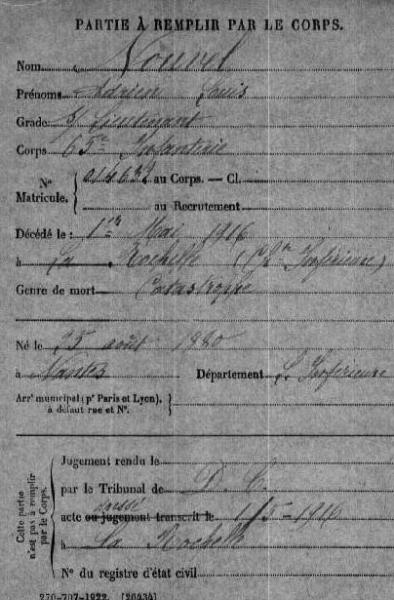 PARTIE À REMPLIR PAR LE CORPS.
Nom Nouvel
Prénoms Adrien Louis
Grade S/ Lieutenant
Corps 65e Infanterie
N° Matricule. 014632 au Corps. — Cl.
au Recrutement
Décédé le : 1er Mai 1916
à La Rochelle (Ch. Inférieure)
Genre de mort Catastrophe
Né le 15 août 1880
à Nantes Département L. Inférieure
Arrt municipal (pr Paris et Lyon), à défaut rue et N°.
Cette partie n'est pas à remplir par le Corps.
Jugement rendu le
par le Tribunal de D. C.
acte ou jugement transcrit le dressé 1/5-1916
à La Rochelle
N° du registre d'état civil
270-707-1922. [26434]